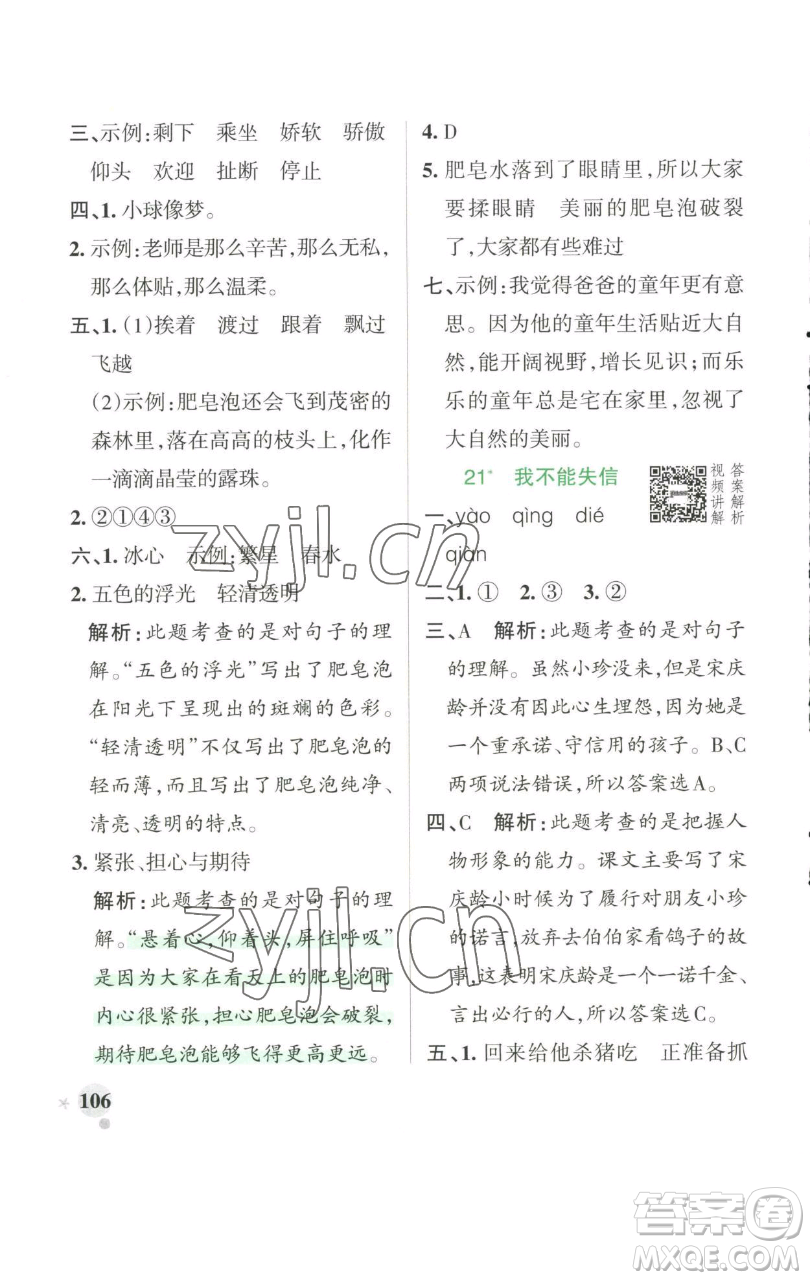 三、示例:剩下 乘坐 娇软 骄傲
仰头 欢迎 扯断 停止
四、1. 小球像梦。
2. 示例:老师是那么辛苦,那么无私,
那么体贴,那么温柔。
五、1. (1)挨着 渡过 跟着 飘过
飞越
(2)示例:肥皂泡还会飞到茂密的
森林里,落在高高的枝头上,化作
一滴滴晶莹的露珠。
2. ②①④③
六、1. 冰心 示例:繁星 春水
2. 五色的浮光 轻清透明
解析:此题考查的是对句子的理
解。“五色的浮光”写出了肥皂泡
在阳光下呈现出的斑斓的色彩。
“轻清透明”不仅写出了肥皂泡的
轻而薄,而且写出了肥皂泡纯净、
清亮、透明的特点。
3. 紧张、担心与期待
解析:此题考查的是对句子的理
解。“悬着心,仰着头,屏住呼吸”
是因为大家在看天上的肥皂泡时
内心很紧张,担心肥皂泡会破裂,
期待肥皂泡能够飞得更高更远。
106
4. D
5. 肥皂水落到了眼睛里,所以大家
要揉眼睛 美丽的肥皂泡破裂
了,大家都有些难过
七、示例:我觉得爸爸的童年更有意
思。因为他的童年生活贴近大自
然,能开阔视野,增长见识;而乐
乐的童年总是宅在家里,忽视了
大自然的美丽。
21* 我不能失信
视频讲解
答案解析
一、yào qìng dié
qiàn
二、1. ① 2. ③ 3. ②
三、A 解析:此题考查的是对句子
的理解。虽然小珍没来,但是宋庆
龄并没有因此心生埋怨,因为她是
一个重承诺、守信用的孩子。B、C
两项说法错误,所以答案选A。
四、C 解析:此题考查的是把握人
物形象的能力。课文主要写了宋
庆龄小时候为了履行对朋友小珍
的诺言,放弃去伯伯家看鸽子的故
事,这表明宋庆龄是一个一诺千金、
言出必行的人,所以答案选C。
五、1. 回来给他杀猪吃 正准备抓
zyjl.cn
zyjl.cn
答案圈
MXQE.COM